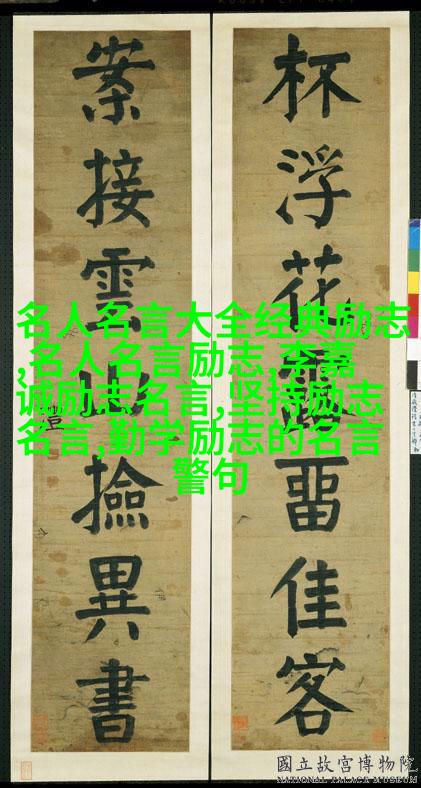 杯浮花畱佳客
案接雲撿異書
名人名言大全经典励志
,名人名言励志,李嘉
诚励志名言,坚持励志
名言,勤学励志的名言
警句
國立故宮博物院
NATIONAL PALACE MUSEUM